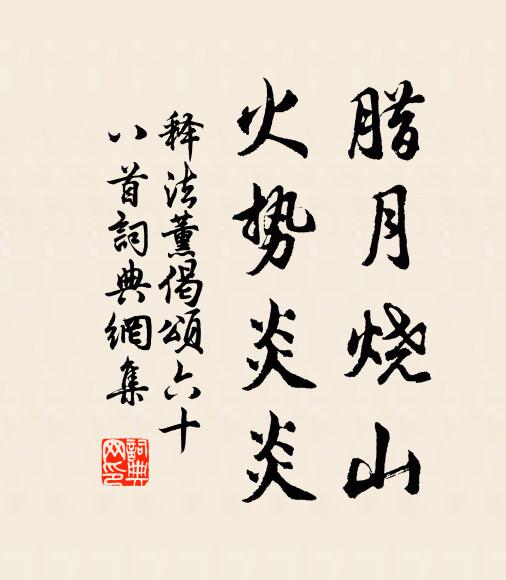 腊月烧山
火势炎炎
释法薰偈颂六十
八首詞典網集
詞典
网印